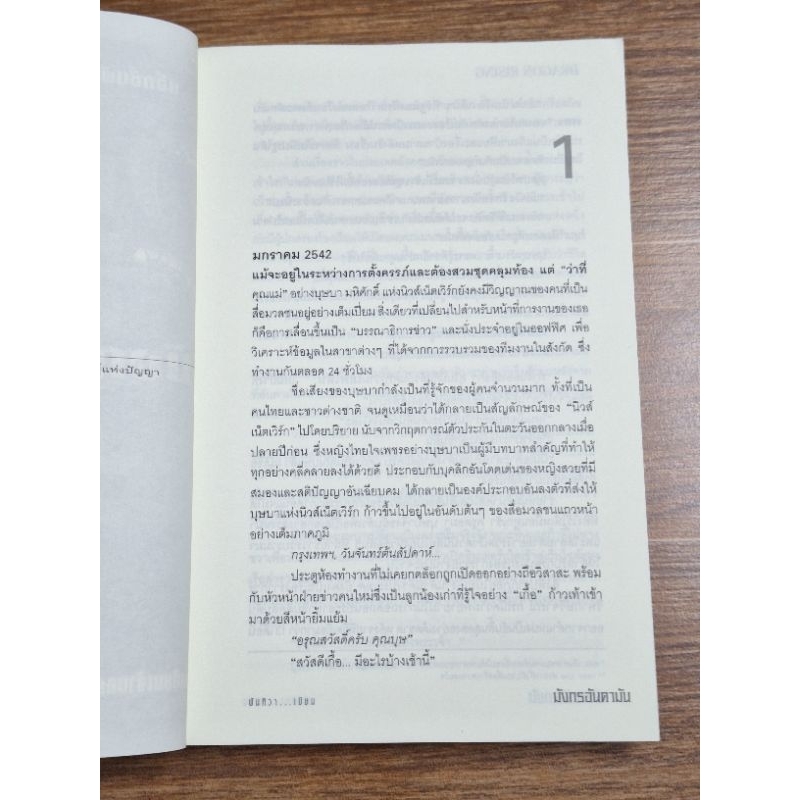 1
มกราคม 2542
แม้จะอยู่ในระหว่างการตั้งครรภ์และต้องสวมชุดคลุมท้อง แต่ “ว่าที่
คุณแม่” อย่างบุษบา มหิศักดิ์ แห่งนิวส์เน็ตเวิร์กยังคงมีวิญญาณของคนที่เป็น
สื่อมวลชนอยู่อย่างเต็มเปี่ยม สิ่งเดียวที่เปลี่ยนไปสำหรับหน้าที่การงานของเธอ
ก็คือการเลื่อนขึ้นเป็น “บรรณาธิการข่าว” และนั่งประจำอยู่ในออฟฟิศ เพื่อ
วิเคราะห์ข้อมูลในสาขาต่างๆ ที่ได้จากการรวบรวมของทีมงานในสังกัด ซึ่ง
ทำงานกันตลอด 24 ชั่วโมง
ชื่อเสียงของบุษบากำลังเป็นที่รู้จักของผู้คนจำนวนมาก ทั้งที่เป็น
คนไทยและชาวต่างชาติ จนดูเหมือนว่าได้กลายเป็นสัญลักษณ์ของ “นิวส์
เน็ตเวิร์ก” ไปโดยปริยาย นับจากวิกฤตการณ์ตัวประกันในตะวันออกกลางเมื่อ
ปลายปีก่อน ซึ่งหญิงไทยใจเพชรอย่างบุษบาเป็นผู้มีบทบาทสำคัญที่ทำให้
ทุกอย่างคลี่คลายลงได้ด้วยดี ประกอบกับบุคลิกอันโดดเด่นของหญิงสวยที่มี
สมองและสติปัญญาอันเฉียบคม ได้กลายเป็นองค์ประกอบอันลงตัวที่ส่งให้
บุษบาแห่งนิวส์เน็ตเวิร์ก ก้าวขึ้นไปอยู่ในอันดับต้นๆ ของสื่อมวลชนแถวหน้า
อย่างเต็มภาคภูมิ
กรุงเทพฯ, วันจันทร์ต้นสัปดาห์...
ประตูห้องทำงานที่ไม่เคยกดล็อกถูกเปิดออกอย่างถือวิสาสะ พร้อม
กับหัวหน้าฝ่ายข่าวคนใหม่ซึ่งเป็นลูกน้องเก่าที่รู้ใจอย่าง “เกื้อ” ก้าวเท้าเข้า
มาด้วยสีหน้ายิ้มแย้ม
“อรุณสวัสดิ์ครับ คุณบุษ”
“สวัสดีเกื้อ... มีอะไรบ้างเช้านี้”
มังกรอันดามัน
แห่งปัญญา